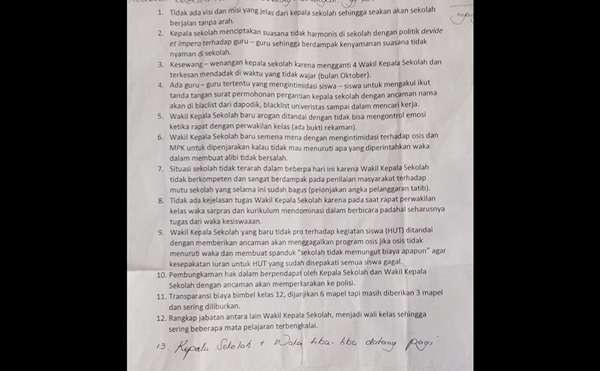 1. Tidak ada visi dan misi yang jelas dari kepala sekolah sehingga seakan akan sekolah
berjalan tanpa arah.
2. Kepala sekolah menciptakan suasana tidak harmonis di sekolah dengan politik devide
et impero terhadap guru – guru sehingga berdampak kenyamanan suasana tidak
nyaman di sekolah.
3. Kesewang – wenangan kepala sekolah karena mengganti 4 Wakil Kepala Sekolah dan
terkesan mendadak di waktu yang tidak wajar (bulan Oktober).
4. Ada guru – guru tertentu yang mengintimidasi siswa – siswa untuk mengakui ikut
tanda tangan surat permohonan pergantian kepala sekolah dengan ancaman nama
akan di blaclist dari dapodik, blacklist univeristas sampai dalam mencari kerja.
5. Wakil Kepala Sekolah baru arogan ditandai dengan tidak bisa mengontrol emosi
ketika rapat dengan perwakilan kelas (ada bukti rekaman).
6. Wakil Kepala Sekolah baru semena mena dengan mengintimidasi terhadap osis dan
MPK untuk dipenjarakan kalau tidak mau menuruti apa yang diperintahkan waka
dalam membuat alibi tidak bersalah.
7. Situasi sekolah tidak terarah dalam beberpa hari ini karena Wakil Kepala Sekolah
tidak berkompeten dan sangat berdampak pada penilaian masyarakat terhadap
mutu sekolah yang selama ini sudah bagus (pelonjakan angka pelanggaran tatib).
8. Tidak ada kejelasan tugas Wakil Kepala Sekolah karena pada saat rapat perwakilan
kelas waka sarpras dan kurikulum mendominasi dalam berbicara padahal seharusnya
tugas dari waka kesiswaaan.
9. Wakil Kepala Sekolah yang baru tidak pro terhadap kegiatan siswa (HUT) ditandai
dengan memberikan ancaman akan menggagalkan program osis jika osis tidak
menuruti waka dan membuat spanduk "sekolah tidak memungut biaya apapun" agar
kesepakatan iuran untuk HUT yang sudah disepakati semua siswa gagal.
10. Pembungkaman hak dalam berpendapat oleh Kepala Sekolah dan Wakil Kepala
Sekolah dengan ancaman akan memperkarakan ke polisi.
11. Transparansi biaya bimbel kelas 12, dijanjikan 6 mapel tapi masih diberikan 3 mapel
dan sering diliburkan.
12. Rangkap jabatan antara lain Wakil Kepala Sekolah, menjadi wali kelas sehingga
sering beberapa mata pelajaran terbengkalai.
13. Kepala Sekolah + Waka tiba-tiba datang pagi